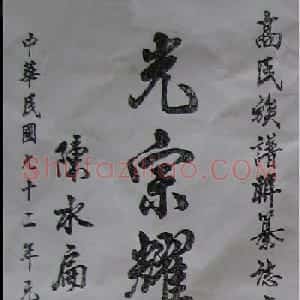 高氏族譜聯纂誌
光宗耀
陳水扁
中華民國九十二年元
Shufaziliao.com